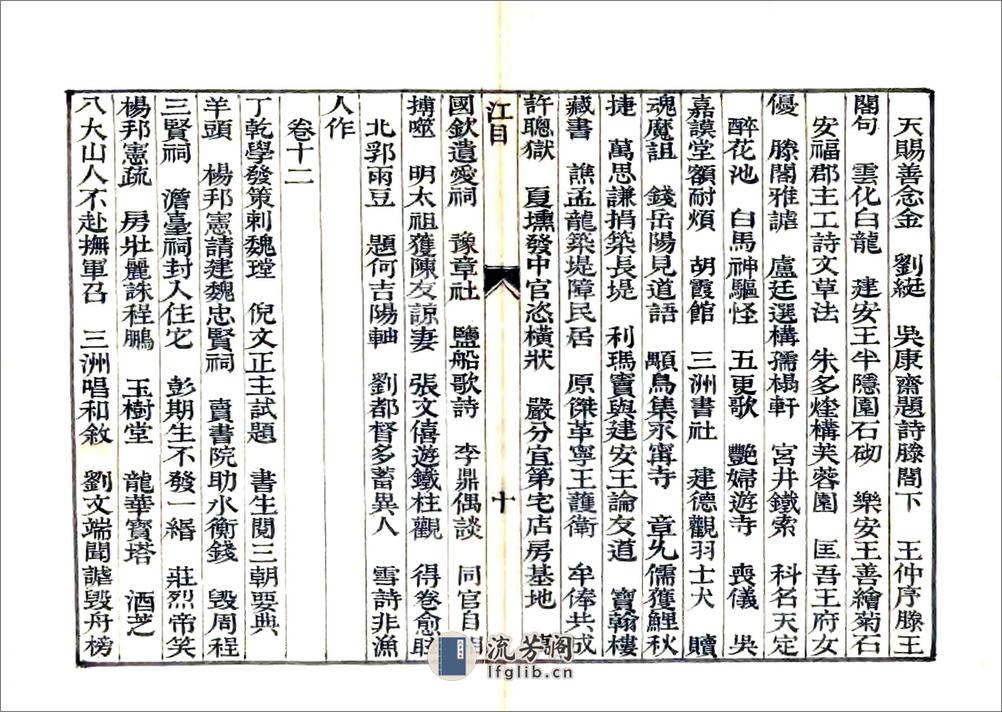 天賜善念金　劉綎　吳康齋題詩滕閣下　王仲序滕王
閣句　雲化白龍　建安王半隱園石砌　樂安王善繪菊石
安福郡主工詩文草法　朱多煃構芙蓉園　匡吾王府女
優　滕閣雅謔　盧廷選構孺榻軒　宮井鐵索　科名天定
醉花池　白馬神驅怪　五更歌　艷婦遊寺　喪儀　吳
嘉謨堂額耐煩　胡霞館　三洲書社　建德觀羽士犬　贖
魂魔詛　錢岳陽見道語　顒鳥集永甯寺　章允儒獲鯉秋
捷　萬思謙捐築長堤　利瑪竇與建安王論友道　寶翰樓
藏書　譙孟龍築堤障民居　原傑革寧王護衛　牟俸共成
許聰獄　夏壎發中官恣橫狀　嚴分宜第宅店房基地
江目　十
國欽遺愛祠　豫章社　鹽船歌詩　李鼎偶談　同官自
搏噬　明太祖獲陳友諒妻　張文僖遊鐵柱觀　得卷愈
北郭雨豆　題何吉陽軸　劉都督多蓄異人　雪詩非漁
人作
卷十二
丁乾學發策刺魏璫　倪文正主試題　書生閱三朝要典
羊頭　楊邦憲請建魏忠賢祠　賣書院助水衡錢　毀周程
三賢祠　澹臺祠封入住宅　彭期生不發一緡　莊烈帝笑
楊邦憲疏　房壯麗誅程鵬　玉樹堂　龍華寶塔　酒芝
八大山人不赴撫軍召　三洲唱和敘　劉文端聞謔毀舟榜
流芳閣
lfglib.cn